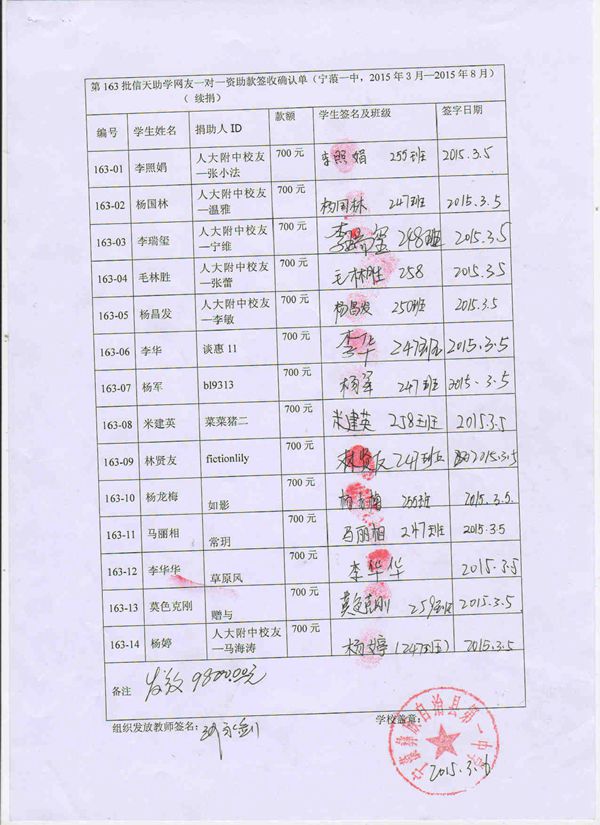 第 163 批信天助学网友一对一资助款签收确认单（宁蒗一中，2015 年 3 月—2015 年 8 月）
（ 续捐）
编号 学生姓名 捐助人 ID 款额 学生签名及班级 签字日期
163-01 李照娟 人大附中校友 700 元 李照娟 255班 2015.3.5
—张小法
163-02 杨国林 人大附中校友 700 元 杨国林 247班 2015.3.5
—温雅
163-03 李瑞玺 人大附中校友 700 元 李瑞玺 248班 2015.3.5
—宁维
163-04 毛林胜 人大附中校友 700 元 毛林胜 258 2015.3.5
—张蕾
163-05 杨昌发 人大附中校友 700 元 杨昌发 250班 2015.3.5
—李敏
163-06 李华 谈惠 11 700 元 李华 247班 2015.3.5
163-07 杨军 bl9313 700 元 杨军 247班 2015.3.5
163-08 米建英 菜菜猪二 700 元 米建英 258班 2015.3.5
163-09 林贤友 fictionlily 700 元 林贤友 247班 2015.3.5
163-10 杨龙梅 如影 700 元 杨龙梅 255班 2015.3.5.
163-11 马丽相 常玥 700 元 马丽相 247班 2015.3.5
163-12 李华华 草原风 700 元 李华华 2015.3.5
163-13 莫色克刚 赠与 700 元 莫色克刚 259班 2015.3.5.
163-14 杨婷 人大附中校友 700 元 杨婷 (247班) 2015.3.5
—马海涛
备注 发放 9800.00元
组织发放教师签名： 学校盖章：
宁蒗彝族自治县第一中学
2015.3.6